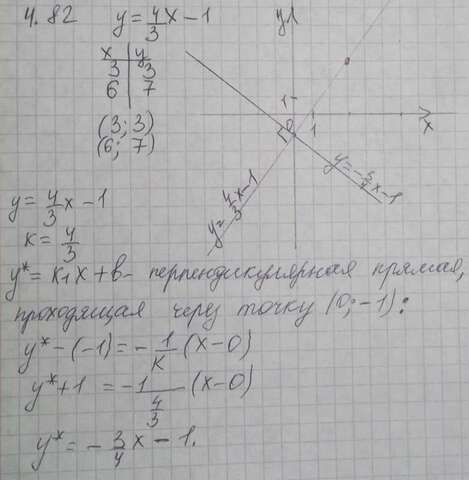 4.82 y = 4/3 x - 1
x | y
3 | 3
6 | 7
(3; 3)
(6; 7)
y
1
0
1
x
y = 4/3 x - 1
y = - 3/4 x - 1
y = 4/3 x - 1
к = 4/3
y* = к₁x + в - перпендикулярная прямая,
проходящая через точку (0; -1):
y* - (-1) = - 1/к (x - 0)
y* + 1 = - 1/(4/3) (x - 0)
y* = - 3/4 x - 1.